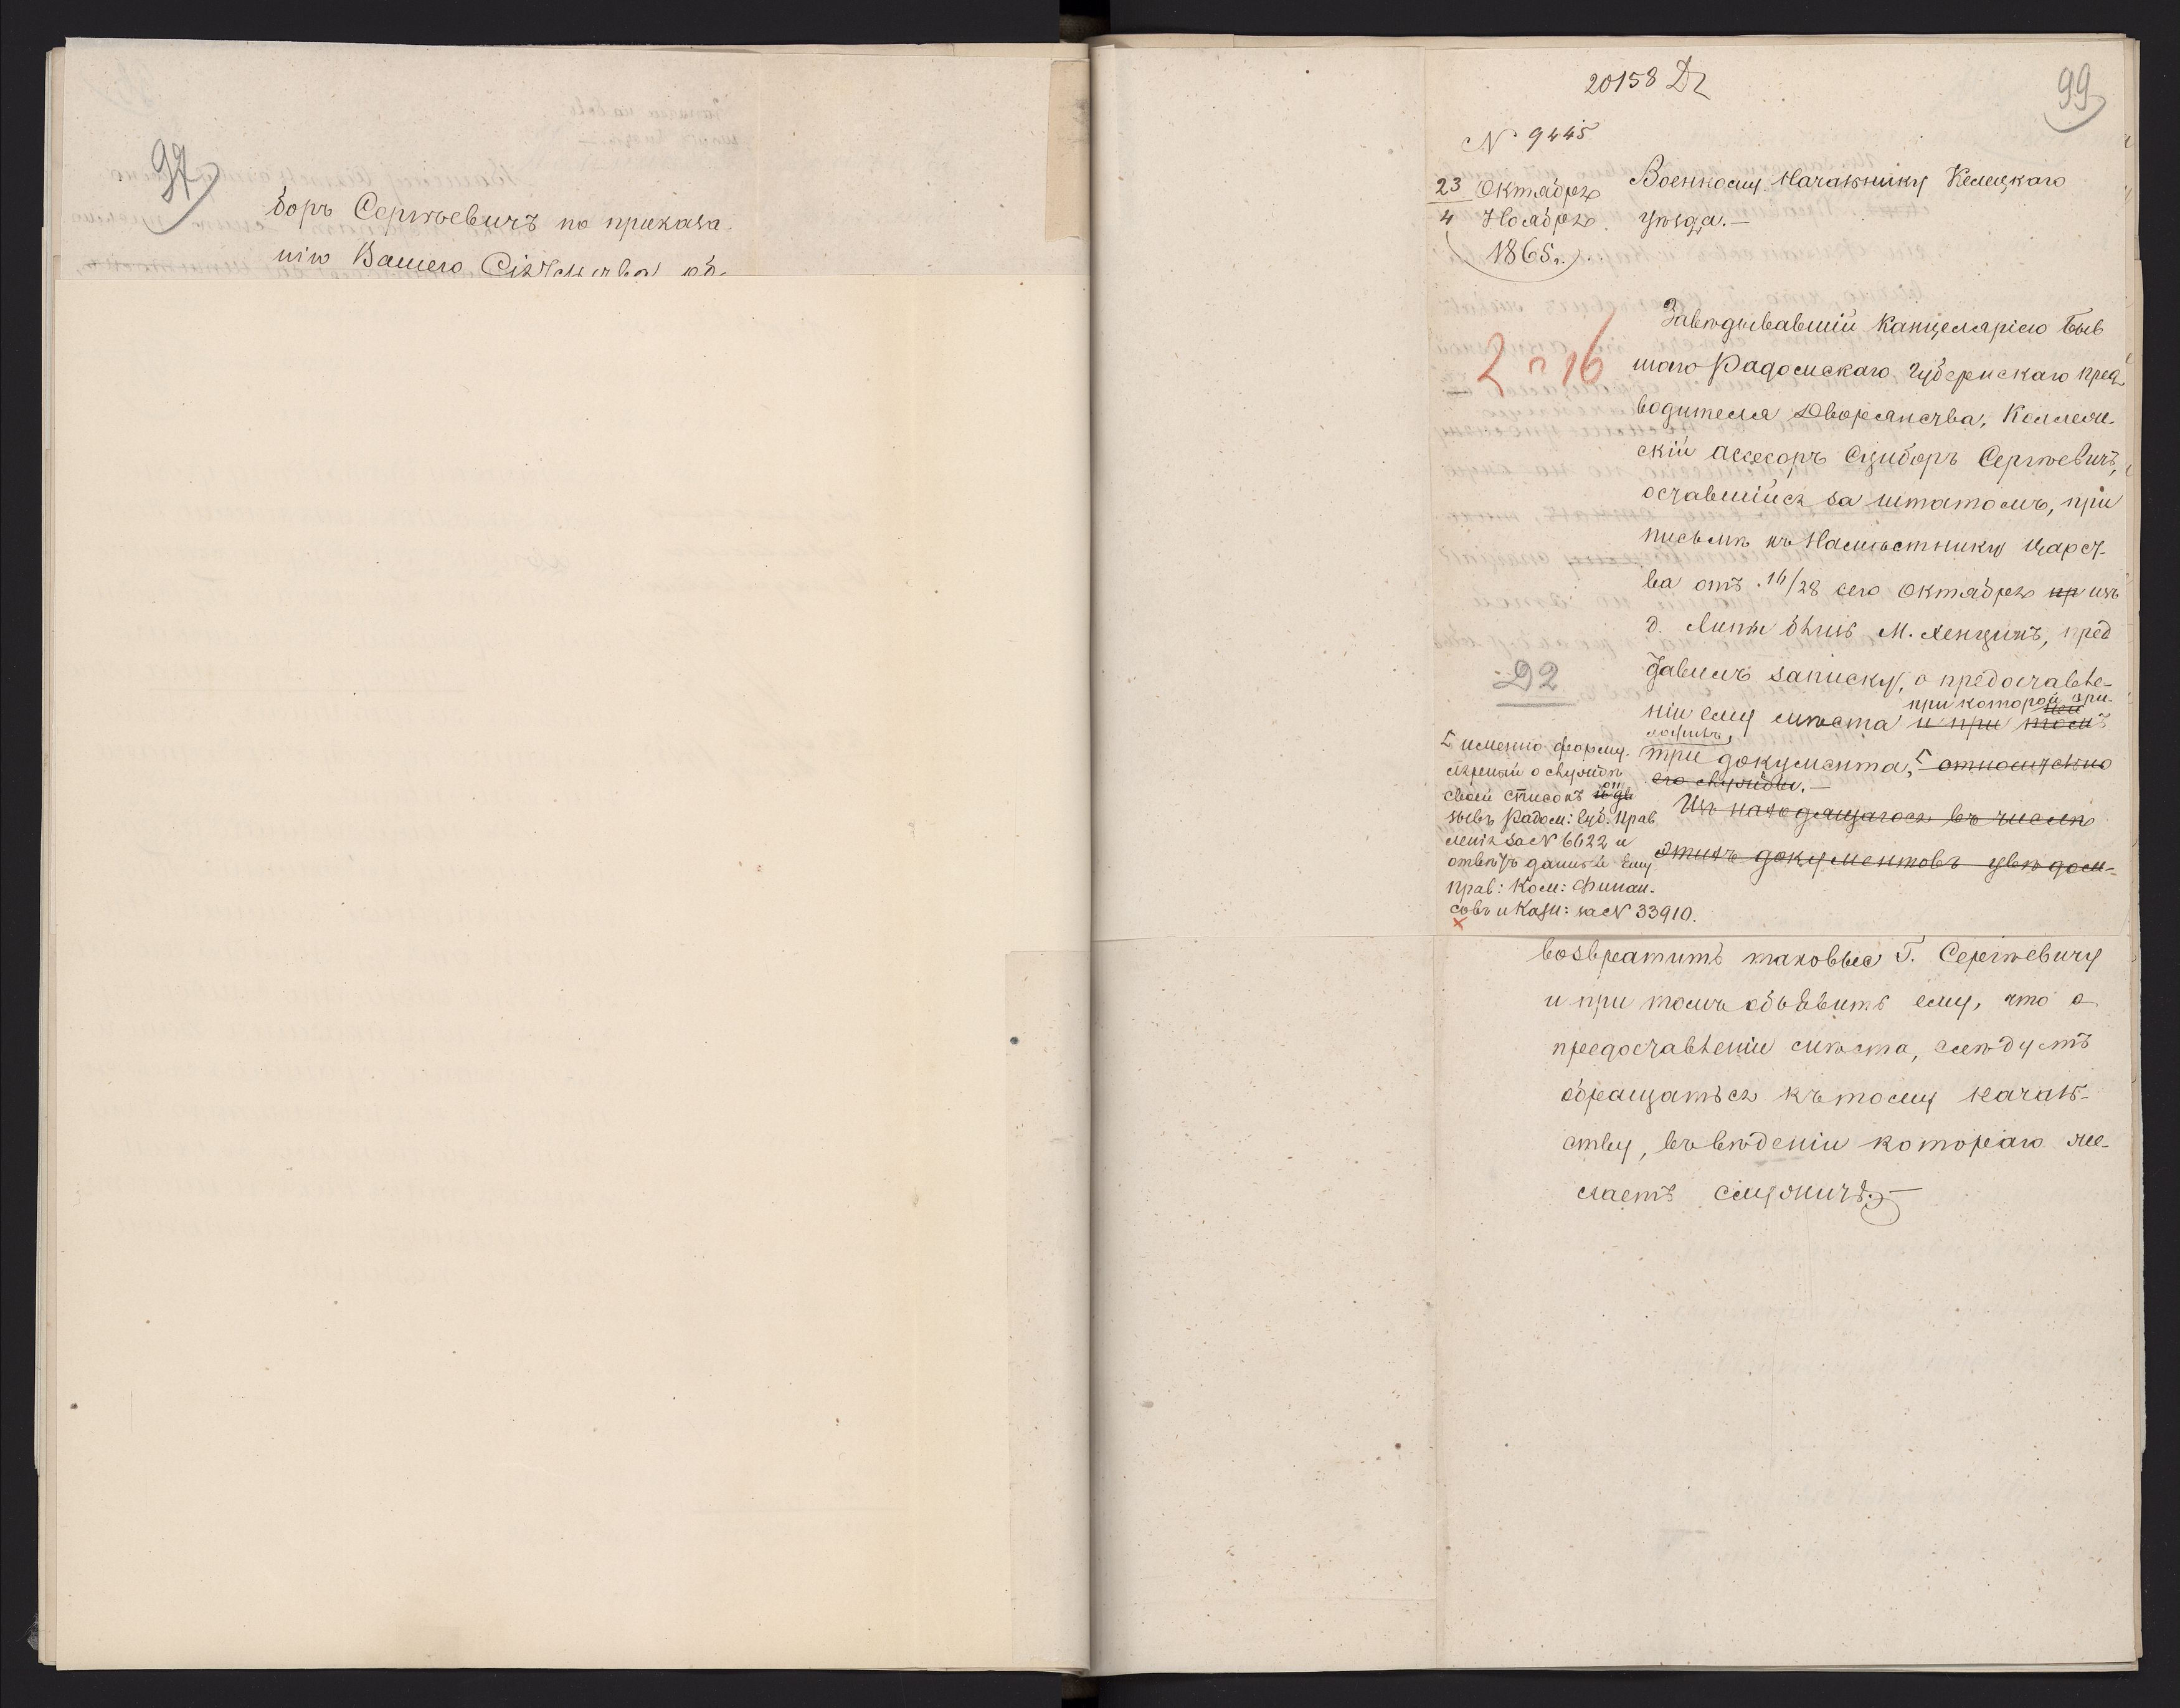 97
боръ Сергѣевичъ по приказа-
нію Вашего Сіятельства об-
99
20158 Дг
N 9445
23 Октября
4 Ноября
1865 г.
Военному Начальнику Келецкаго
уѣзда.—
2 n 16
Завѣдывавшій Канцеляріею Быв
шаго Радомскаго Губернскаго Пред
водителя Дворянства, Коллеж-
скій Ассесоръ Сциборъ Сергѣевичъ,
оставшійся за штатомъ, при
письмѣ къ Намѣстнику Царст-
ва отъ 16/28 сего Октября пр изъ
д. Липы близь М. Хенцинъ, пред
ставилъ записку, о предоставле-
ніи ему мѣста и при томъ
при которой при-
ложилъ
три документа, относительно
его службы.—
Изъ находящагося въ числѣ
этихъ документовъ увѣдом-
92
именно формуля-
лярный о службѣ
своей списокъ от
зывъ Радом: Губ. Прав
ленія за N 6622 и
отвѣтъ данный ему
Прав: Ком: Финан-
совъ и Казн: за N 33910.
возвратить таковые Г. Сергѣевичу
и при томъ объявить ему, что о
предоставленіи мѣста, слѣдуетъ
обращаться къ тому началь-
ству, въ вѣденіи котораго же-
лаетъ служить.—